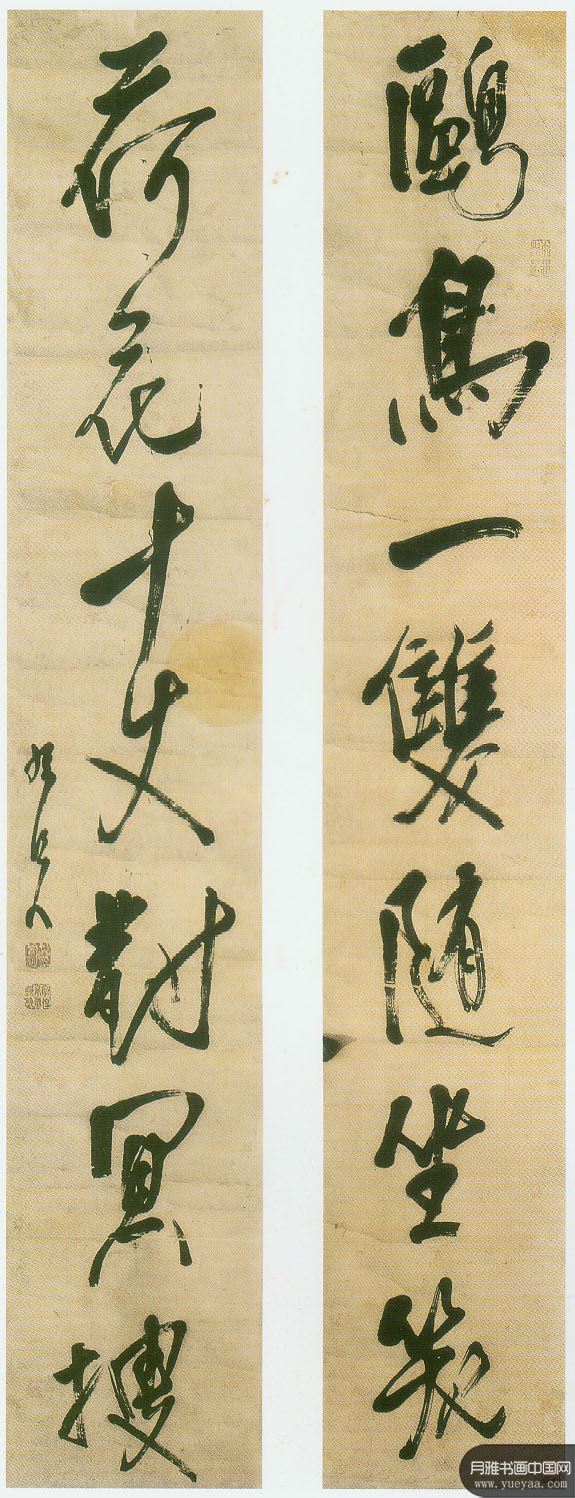 鷗鳥一雙隨坐笑
荷花十丈對冥搜
月雅书画中国网
www.yueyaa.com